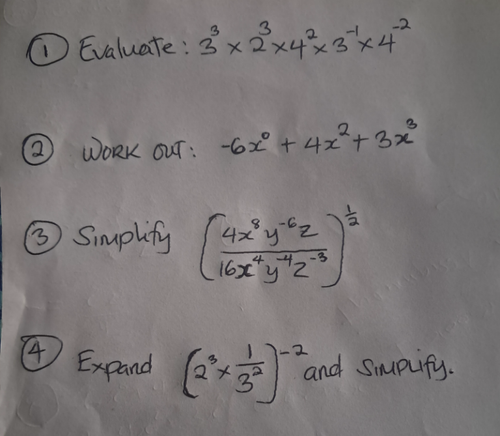 ① Evaluate: 3³ × 2³ × 4² × 3⁻¹ × 4⁻²
② WORK OUT: -6x⁰ + 4x² + 3x³
③ Simplify (4x⁸y⁻⁶z / 16x⁴y⁻⁴z⁻³)^½
④ Expand (2³ × 1/3²)⁻² and simplify.